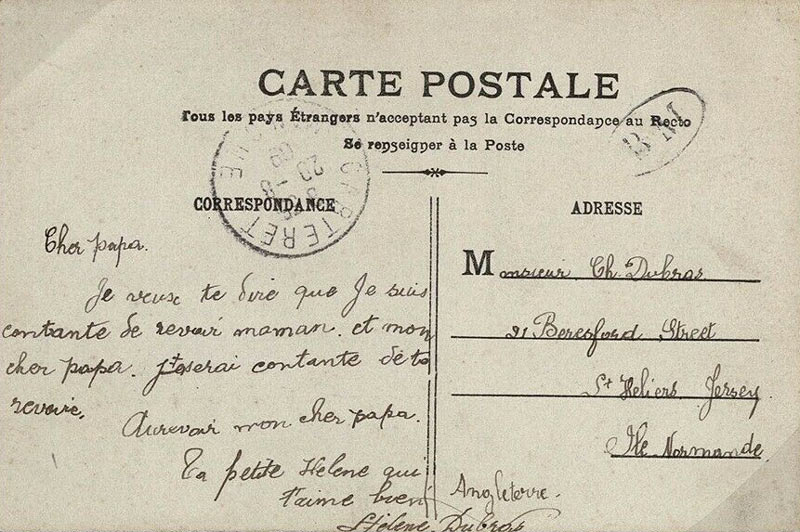 CARTE POSTALE
Tous les pays Étrangers n'acceptent pas la Correspondance au Recto
Se renseigner à la Poste
CARTERET
B M
CORRESPONDANCE
Cher papa.
Je veux te dire que Je suis
contante de revoir maman. et mon
cher papa. serai contante de to
revoire.
Aurevoir mon cher papa.
Ta petite Helene qui
t'aime bien
Helene Dubras
ADRESSE
Monsieur Ch. Dubras
Beresford Street
St Heliers Jersey
Ile Normande
Angleterre.